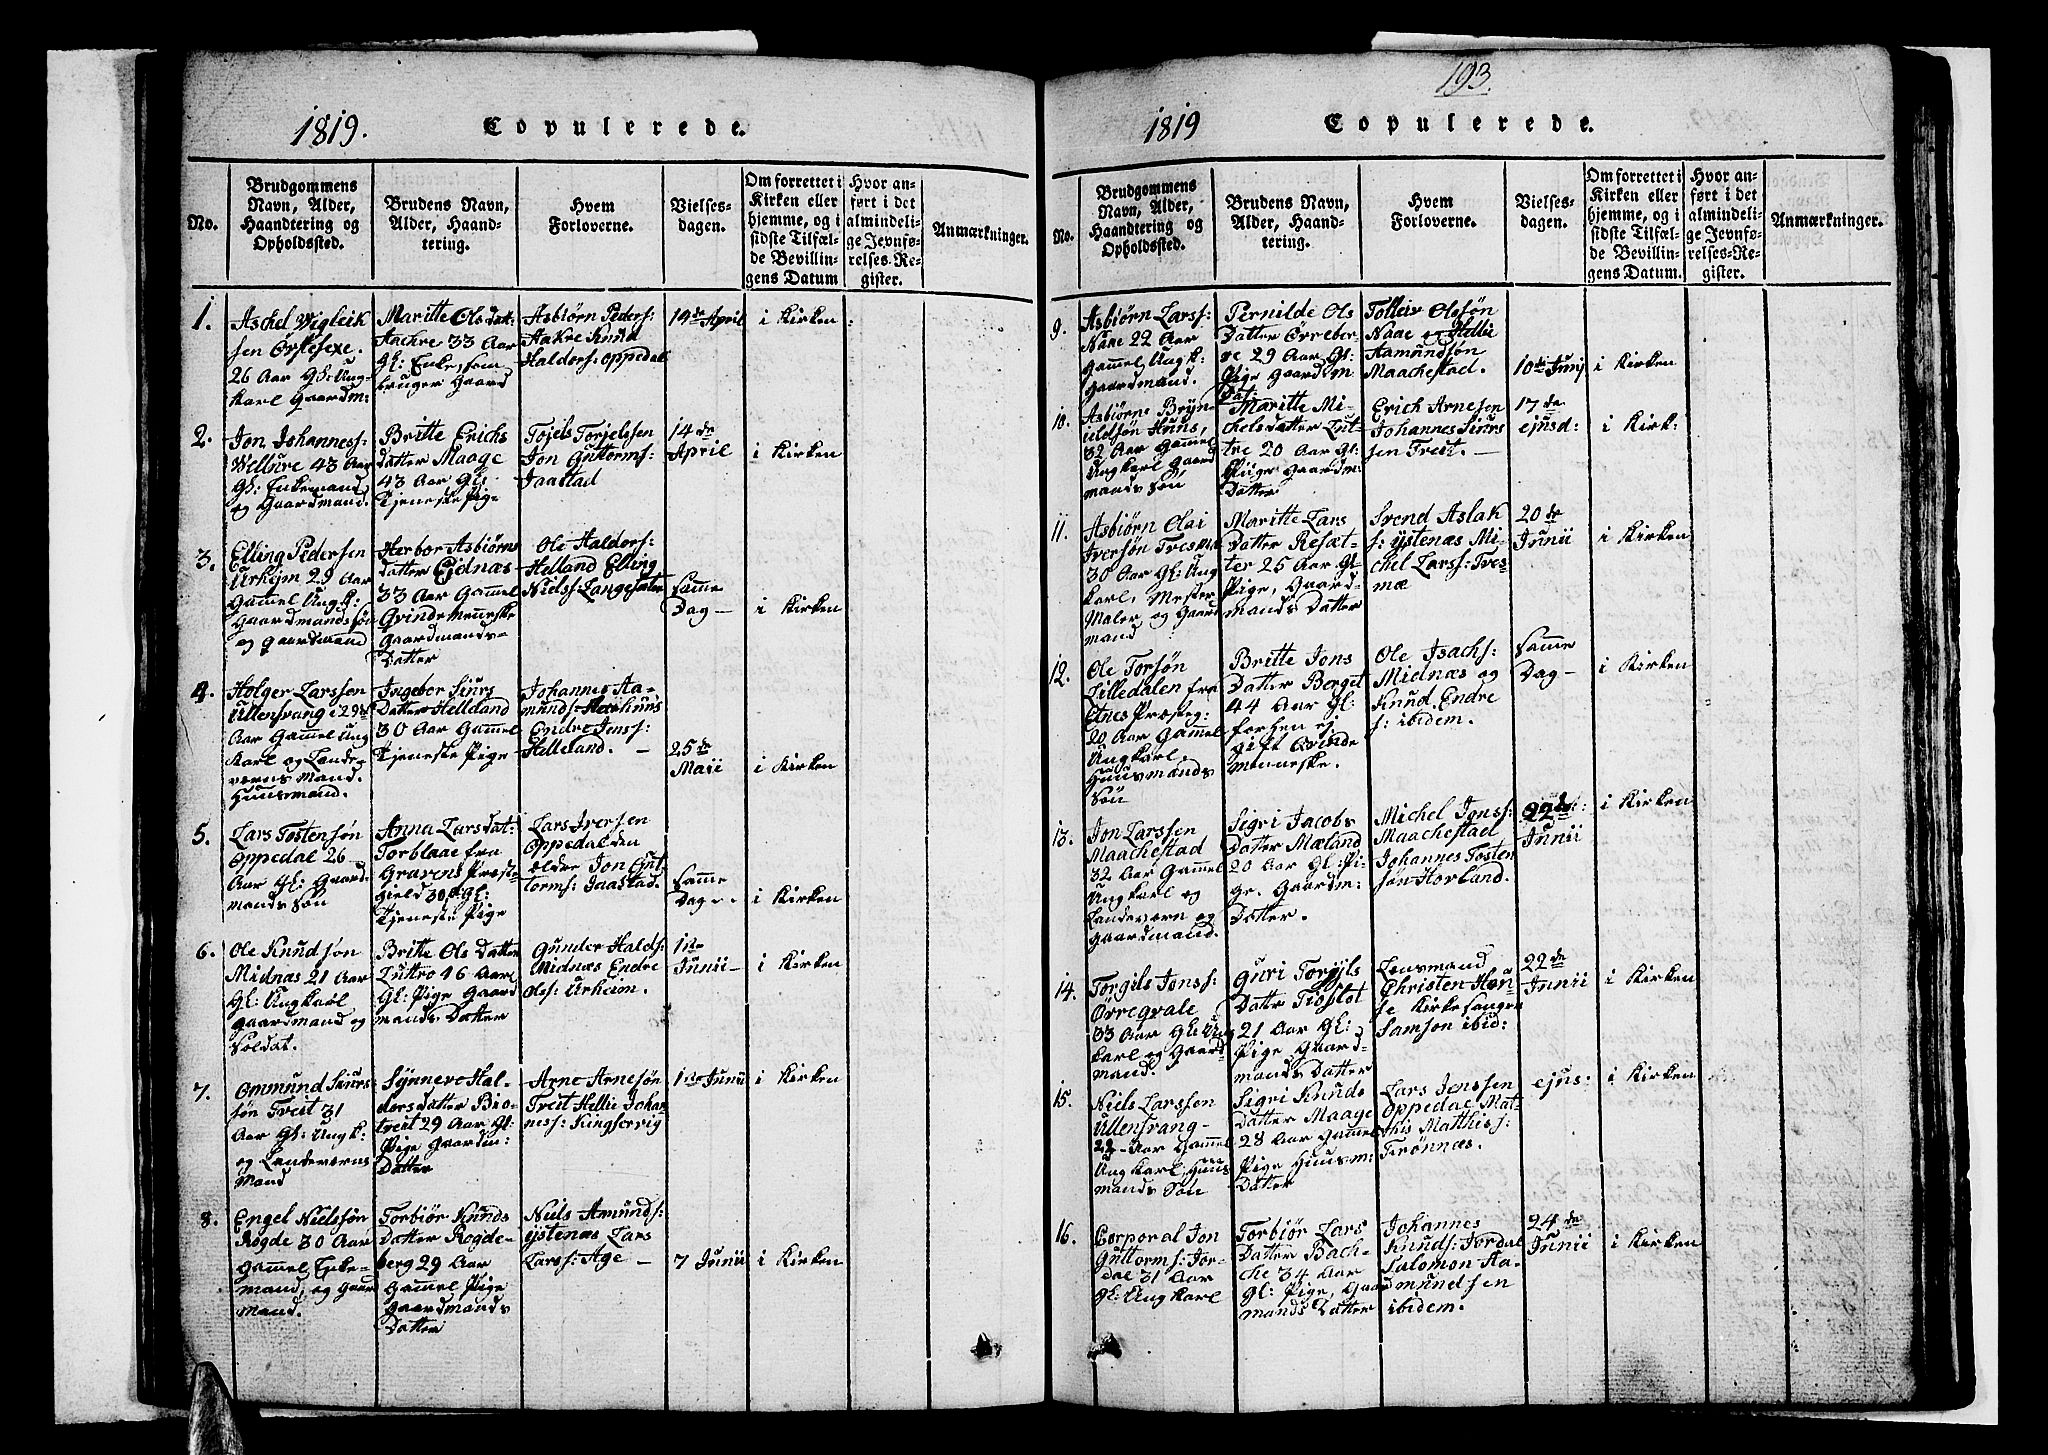 1819. Copulerede.
No.
Brudgommens
Navn, Alder,
Haandtering og
Opholdssted.
Brudens Navn,
Alder, Haand-
tering.
Hvem
Forloverne.
Vielses-
dagen.
Om forrettet i
Kirken eller
hjemme, og i
sidste Tilfæl-
de Bevillin-
gens Datum
Hvor an-
ført i det
almindeli-
ge Jevnfø-
relses-Re-
gister.
Anmærkninger.
1.
Askel Vigleik
sen Erkesexe.
26 Aar Gl: Ung-
karl Gaardm:
Maritte Olsdat-
Aachre 33 Aar
Gl: Enke, som
bruger Gaard
Asbiørn Peders:
Aakre Knud
Halders: Oppedal
14de April
i Kirken
2.
Jon Johanness:
Vellure 43 Aar
Gl: Enkemand
og Gaardmand.
Britte Erichs
datter Maage
43 Aar Gl:
Tjeneste Pige
Torjels Torjelssen
Jon Guttorms:
Jaastad
14de
April
i Kirken
3.
Elling Pedersen
Urheim 29 Aar
Gammel Ungk:
Gaardmandssøn
og Gaardmand
Herbor Asbiørns
datter Eidnæs
33 Aar Gammel
Qvindemenneske
Gaardmands-
Datter
Ole Halders:
Helland Elling
Niels: Langesæter
Samme
Dag-
i Kirken
4.
Holger Larssen
Ullensvang i 29de
Aar Gammel Ung
Karl og Lande-
værns Mand.
Huusmand.
Ingebor Siurs
Datter Helleland
30 Aar Gammel
Tjeneste Pige
Johannes Aa-
munds: Aarhuus
Endre Jons:
Helleland. -
25de
Maii
i Kirken
5.
Lars Tostensøn
Oppedal 26
Aar Gl: Gaard-
mands Søn
Anna Larsdat-
Torblaae fra
Gravens Præste
gield 30 Gl:
Tjeneste Pige
Lars Iversen
Oppedal den
ældre Jon Gut-
torms: Jaastad.
Samme
Dag-.
i Kirken
6.
Ole Knudsøn
Midnæs 21 Aar
Gl: Ungkarl
Gaardmand og
Soldat.
Britte Ols Datter
Luttro 46 Aar
Gl: Pige Gaard
mands Datter
Gunder Halds:
Midnæs Endre
Oles: Urheim.
1ste
Junii-
i Kirken
7.
Ommund Siurs
søn Treit 31
Aar Gl: Ungk:
og Landeværns
Mand
Synneve Hal-
dors datter Bio-
treit 29 Aar Gl:
Pige Gaardm:
Datter
Arne Arnesøn
Treit Hellie Johan
ness: Kingservig
1ste Junii
i Kirken
8.
Engel Nielssøn
Rogde 30 Aar
Gammel Enke-
mand, og Gaar
Mand.
Torbiør Knuds
Datter Rogde-
berg 29 Aar
Gammel Pige
Gaardmands
Datter
Niels Amunds:
ÿstenæs Lars
Larss: Age -
7 Junii
i Kirken
193.
1819 Copulerede.
No.
Brudgommens
Navn, Alder,
Haandtering og
Opholdssted.
Brudens Navn,
Alder, Haand-
tering.
Hvem
Forloverne.
Vielses-
dagen.
Om forrettet i
Kirken eller
hjemme, og i
sidste Tilfæl-
de Bevillin-
gens Datum.
Hvor an-
ført i det
almindeli-
ge Jevnfø-
relses-Re-
gister.
Anmærkninger.
9.
Asbiørn Larss:
Naae 22 Aar
Gammel Ungk:
Gaardmand.
Pernilde Ols
Datter Ørreber-
ve 29 Aar Gl:
Pige Gaardsm
Dat:
Tolleiv Olssøn
Naae og Hellie
Aamundsøn
Maachestad.
10de Junj
i Kirken
10.
Asbiørn Bryn-
ildsøn Huns,
32 Aar Gammel
Ungkarl Gaard
mands Søn
Maritte Mi-
chelsdatter Lut-
tre 20 Aar Gl:
Piige Gaardm.
Datter
Erich Arnesen
Johannes Siurs
sen Treit. -
17de
ejusd:
i Kirk:
11.
Asbiørn Olai
Iversøn Tres
30 Aar Gl: Ung
karl, Mester
Maler og Gaard
mand
Maritte Lars
Datter Resæt-
ter 25 Aar Gl
Pige, Gaard-
mands Datter
Svend Aslak
s: ÿstenæs Mi-
chel Larss: Tves-
mæ
20de
Junii
i Kirken
12.
Ole Torsøn
Lilledalen fra
Etnes Præsteg:
20 Aar Gammel
Ungkarl
Huusmands
Søn
Britte Jons
Datter Berget
44 Aar Gl:
forhen ej
gift Qvinde
Menneske.
Ole Isachs:
Midnæs og
Knud Endre
s: ibidem.
Samme
Dag-
i Kirken
13.
Jon Larssen
Maachestad
32 Aar Gammel
Ungkarl og
Landeværn og
Gaardmand.
Sigri Jacobs
Datter Mæland
20 Aar Gl: Pi-
ge. Gaardm:
Datter.
Michel Jonss:
Maachestad
Johannes Tosten
søn Horland.
22de:
Junii
i Kirken
14.
Torgils Jonss:
Ørregvale
33 Aar Gl: Ung
karl og Gaard
mand.
Guri Torgils
Datter Tioflot
21 Aar Gl:
Pige Gaard-
mands Datter
Lensmand
Christen Han-
se Kirkesanger
Samson ibid:
22de
Junii
i Kirken
15.
Niels Larssen
Ullensvang-
22- Aar Gammel
Ungkarl, Huus
mands Søn
Sigri Knuds
Datter Maage
28 Aar Gammel
Pige Huusm:
Datter
Lars Jenssen
Oppedal Mat-
this Mathiss:
Frønnæs.
ejus:
i Kirken
16.
Corporal Jon
Guttorms: Jor-
dal 31 Aar
Gl: Ungkarl
Torbiør Lars
Datter Bach-
che 34 Aar
Gl: Pige, Gaard
mands Datter
Johannes
Knuds: Jordal
Salomon Aa-
mundsen
ibidem.
24de
Junii
i Kirken